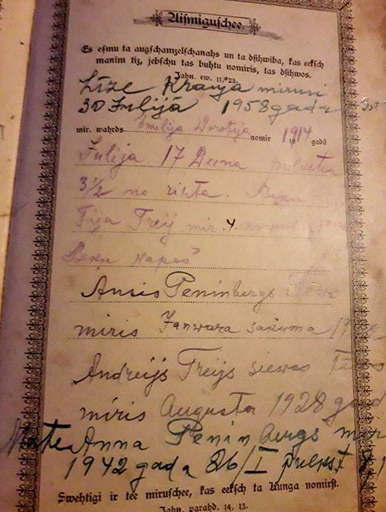 Aismiguschee.
Es esmu ta augschamzelschanahs un ta dsihwiba, kas eeksch
manim tiz, jebschu tas buhtu nomiris, tas dsihwos.
Jahn. ew. 11, 25.
Lize Kranja mirusi
30 Julija 1958 gada
mir. wahrds Emilija Dorotija nomir 1914 gadā
Julija 17 Deena pulksten
3 1/2 no rihta.
Trija Treij mir. 4
kapos
Ansis Peninbergs
miris Janwara sakuma
Andreijs Treijs siewas
miris Augusta 1928 gad
Mate Anna Peninbergs mir
1942 gada 26/I pulkst
Swehtigi ir tee miruschee, kas eeksch ta Kunga nomirst.
Jahn. parahd. 14, 13.